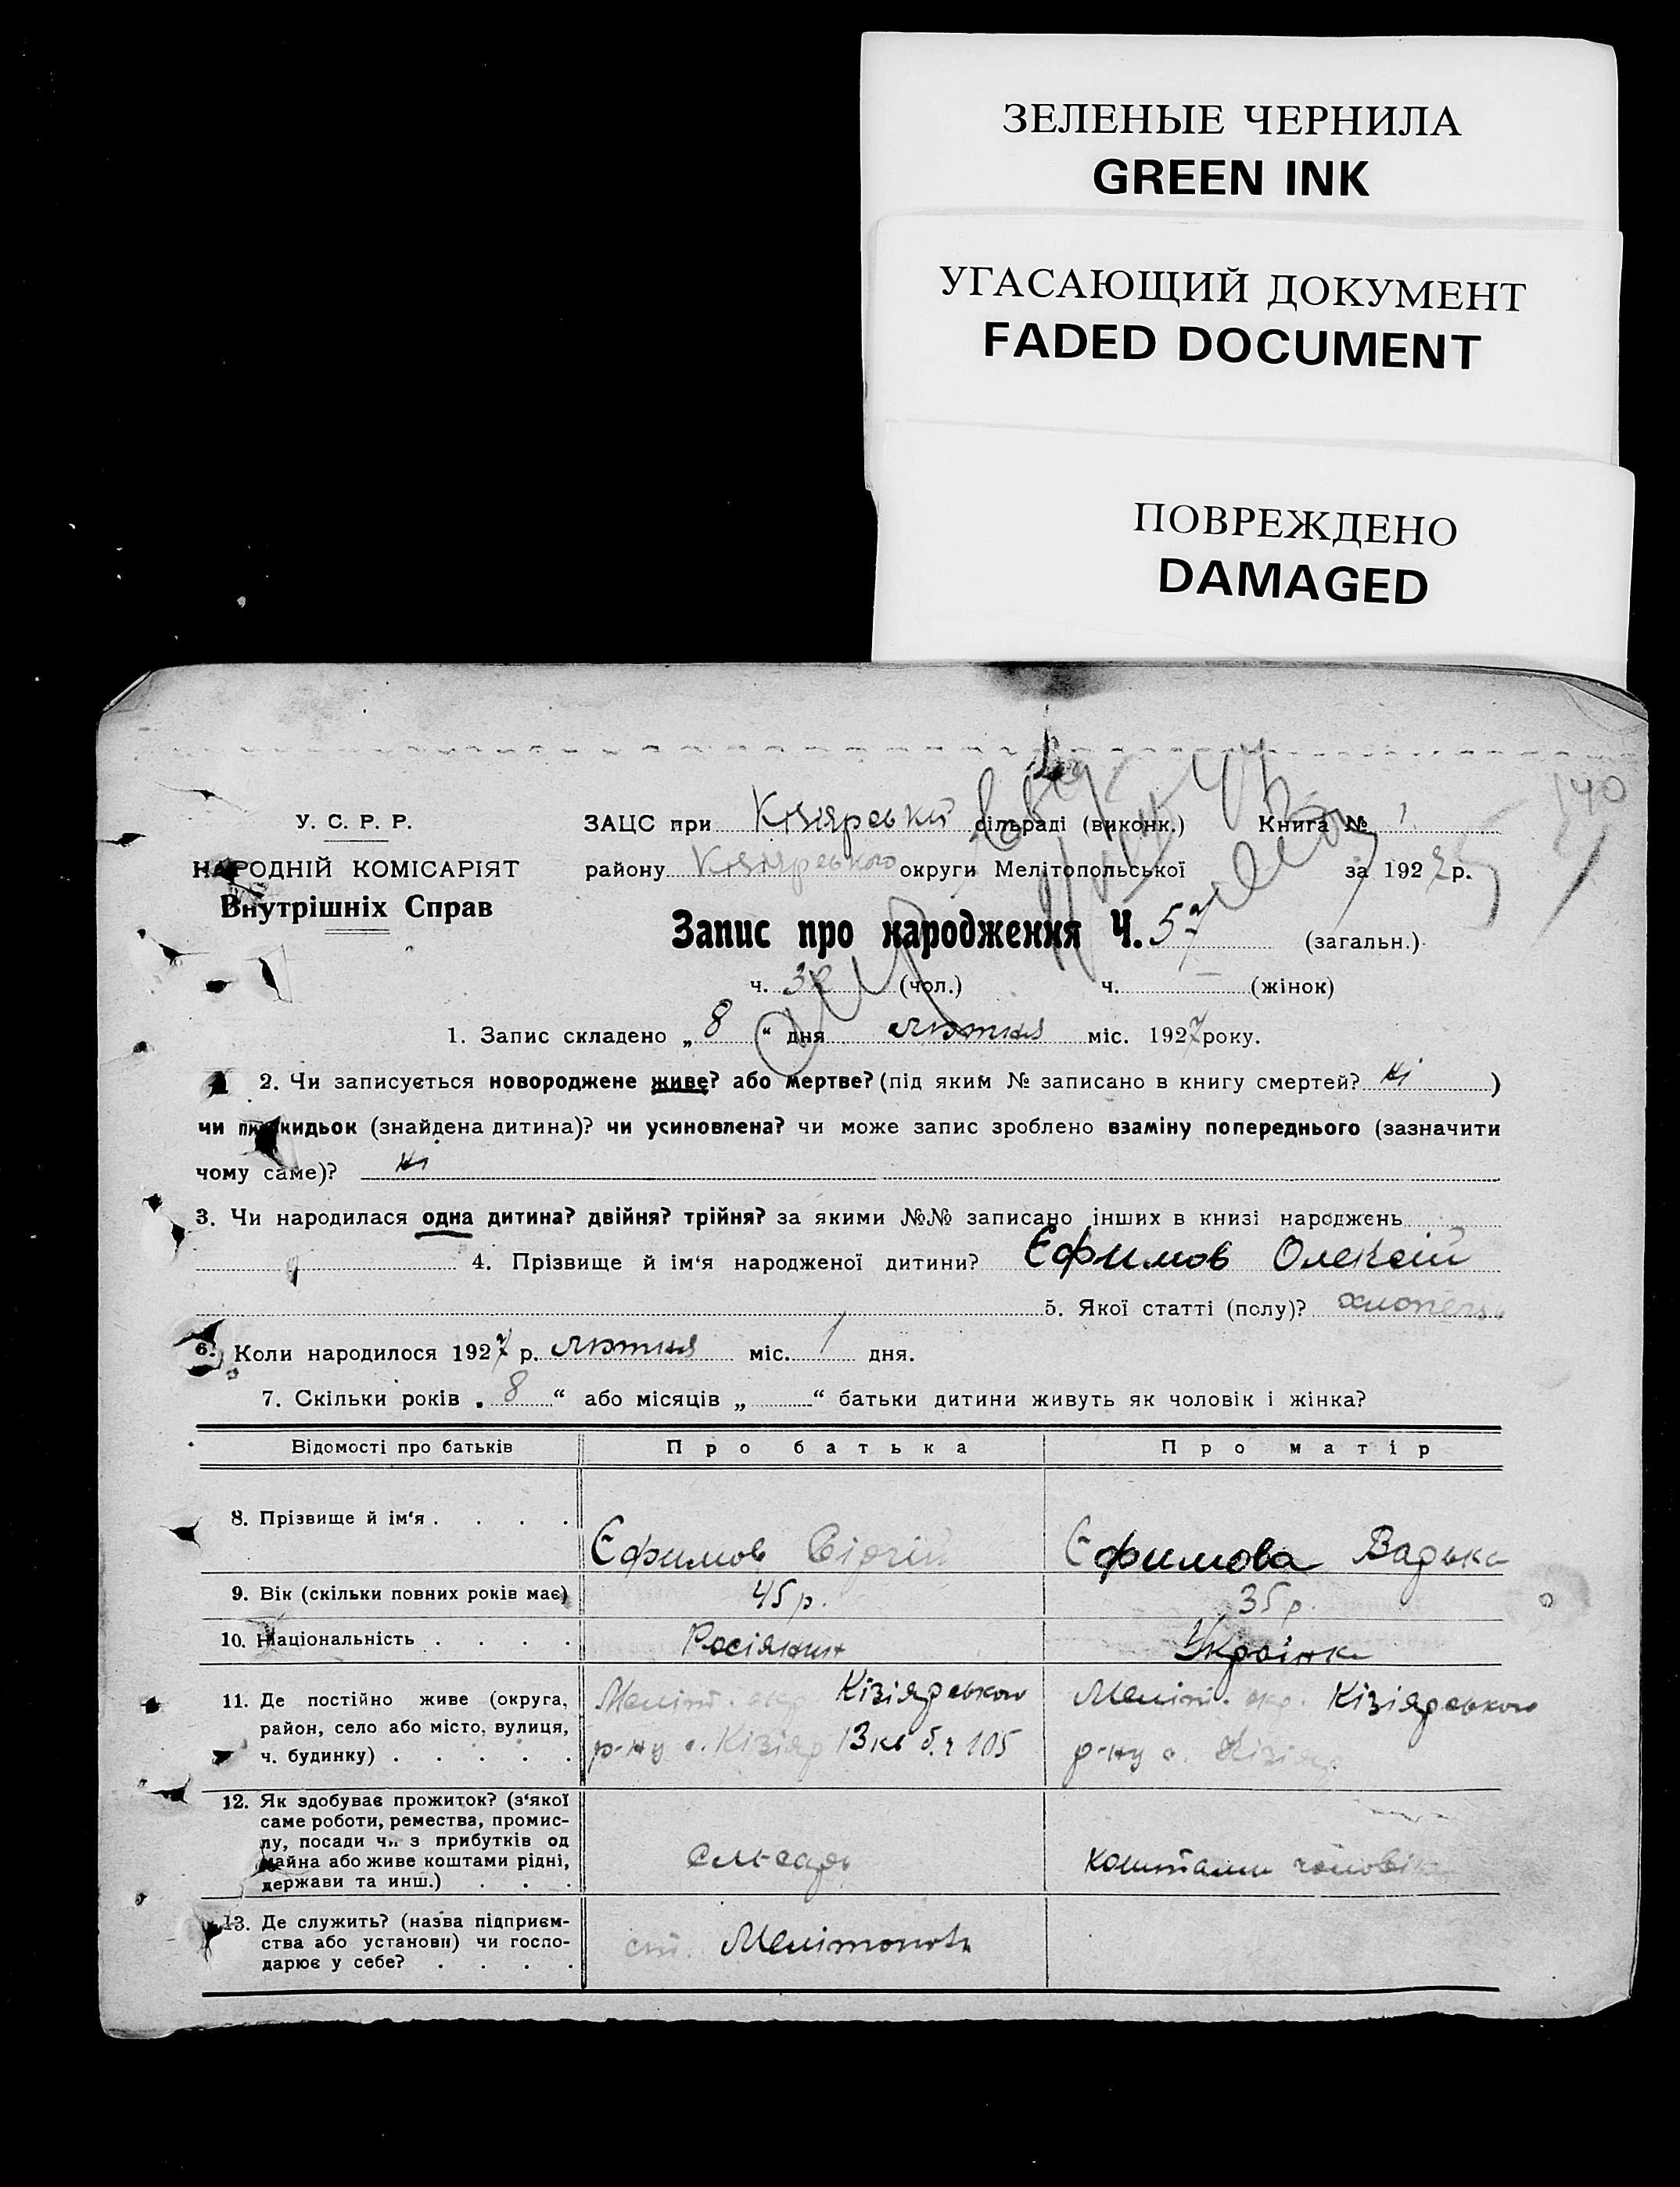 ЗЕЛЕНЫЕ ЧЕРНИЛА
GREEN INK
УГАСАЮЩИЙ ДОКУМЕНТ
FADED DOCUMENT
ПОВРЕЖДЕНО
DAMAGED
140
У. С. Р. Р. ЗАЦС при Кізіярський сільраді (виконк.) Книга № 1
НАРОДНІЙ КОМІСАРІЯТ району Кізіярського округи Мелітопольської за 1927 р.
Внутрішніх Справ
Запис про народження Ч. 57 (загальн.)
ч. 32 (чол.) ч. — (жінок)
1. Запис складено „ 8 “ дня лютня міс. 1927 року.
2. Чи записується новороджене живе? або мертве? (під яким № записано в книгу смертей? ні )
чи підкидьок (знайдена дитина)? чи усиновлена? чи може запис зроблено взаміну попереднього (зазначити
чому саме)? ні
3. Чи народилася одна дитина? двійня? трійня? за якими №№ записано інших в книзі народжень
4. Прізвище й ім‘я народженої дитини? Єфимов Олексій
5. Якої статті (полу)? хлопець
6. Коли народилося 1927 р. лютня міс. 1 дня.
7. Скільки років „ 8 “ або місяців „ “ батьки дитини живуть як чоловік і жінка?
Відомості про батьків Про батька Про матір
8. Прізвище й ім‘я . . . . Єфимов Сіргій Єфимова Варька
9. Вік (скільки повних років має) 45 р. 35 р.
10. Національність . . . . Росіянин Українка
11. Де постійно живе (округа, Меліт. окр. Кізіярського Меліт. окр. Кізіярського
район, село або місто, вулиця, р-ну с. Кізіяр 13 кв б. ч 105 р-ну с. Кізіяр
ч. будинку) . . . . .
12. Як здобуває прожиток? (з‘якої
саме роботи, ремества, промис-
лу, посади чи з прибутків од
майна або живе коштами рідні, слюсарь коштами чоловіка
держави та инш.) . . .
13. Де служить? (назва підприєм-
ства або установи) чи госпо- ст. Мелітополь
дарює у себе? . . . .